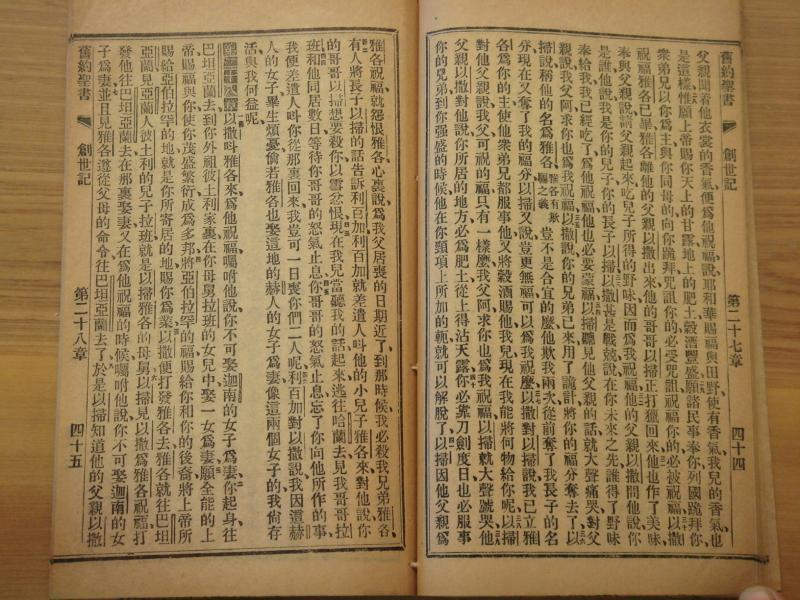 舊約聖書 創世記 第二十七章 四十四
父親聞着他衣裳的香氣便爲他祝福說耶和華賜福與田野使有香氣我兒的香氣也
是這樣惟願上帝賜你天上的甘露地上的肥土穀酒豐盛願諸民事奉你列國跪拜你
衆弟兄以你爲主與你同母的向你跪拜咒詛你的必受咒詛祝福你的必被祝福以撒
祝福雅各已畢雅各離他的父親以撒出來他的哥哥以掃正打獵回來他也作了美味
奉與父親說請父親起來吃兒子所得的野味因而爲我祝福他的父親以撒問他說你
是誰他說我是你的兒子你的長子以掃以撒甚是戰兢說在你未來之先誰得了野味
奉給我我已經吃了爲他祝福他也必妥蒙福以掃聽見他父親的話就大聲痛哭對父
親說我父阿求你也爲我祝福以撒說你的兄弟已來用了詭計將你的福分奪去了以
掃說稱他的名爲雅各雅各有欺騙之義豈不是合宜的麼他欺我兩次從前奪了我長子的名
分現在又奪了我的福分以掃又說豈更無福可以爲我祝麼以撒對以掃說我已立雅
各爲你的主使他衆弟兄都服事他又將穀酒賜他我兒現在我能將何物給你呢以掃
對他父親說我父可祝的福只有一樣麼我父阿求你也爲我祝福以掃就大聲號哭他
父親以撒對他說你所居的地方必爲肥土從上得沾天露你必靠刀劍度日也必服事
你的兄弟到你强盛的時候他在你頸項上所加的軛就可以解脫了以掃因他父親爲
雅各祝福就怨恨雅各心裏說爲我父居喪的日期近了到那時候我必殺我兄弟雅各
有人將長子以掃的話告訴利百加利百加就差遣人叫他的小兒子雅各來對他說你
的哥哥以掃想要殺你以雪忿恨現在我兒當聽我的話起來逃往哈蘭去見我哥哥拉
班和他同居數日等待你哥哥的怒氣止息你哥哥的怒氣止息忘了你向他所作的事
我便差遣人叫你從那裏回來我豈可一日喪你們二人呢利百加對以撒說我因這赫
人的女子畢生煩憂倘若雅各也娶這地的赫人的女子爲妻像這兩個女子的我尙存
活與我何益呢
第二十八章以撒叫雅各來爲他祝福囑咐他說你不可娶迦南的女子爲妻你起身往
巴坦亞蘭去到你外祖彼土利家裏在你母舅拉班的女兒中娶一女爲妻願全能的上
帝賜福與你使你茂盛繁衍成爲多邦將亞伯拉罕的福賜給你和你的後裔將上帝所
賜給亞伯拉罕的地就是你所寄居的地賜你爲業以撒便打發雅各去雅各就往巴坦
亞蘭見亞蘭人彼土利的兒子拉班就是以掃雅各的母舅以掃見以撒爲雅各祝福打
發他往巴坦亞蘭去在那裏娶妻又在爲他祝福的時候囑咐他說你不可娶迦南的女
子爲妻並且見雅各遵從父母的命令往巴坦亞蘭去了於是以掃知道他的父親以撒
舊約聖書 創世記 第二十八章 四十五